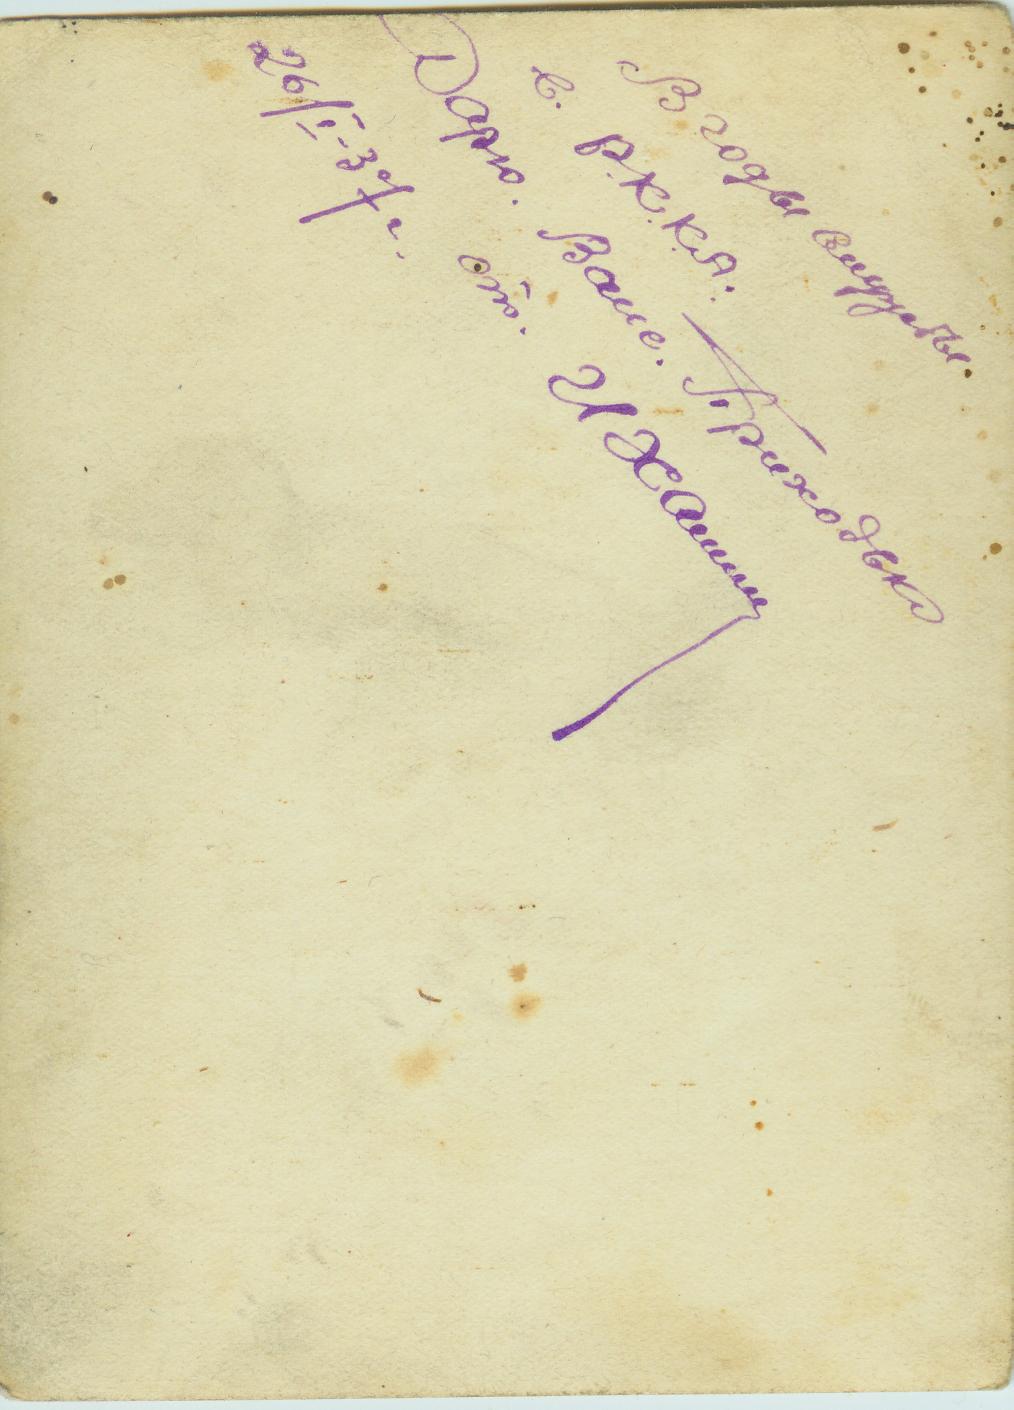 В годы службы.
в. Р.К.К.А.
Дарю. Ване. Приходько
от. И Ханин
26/I-37 г.